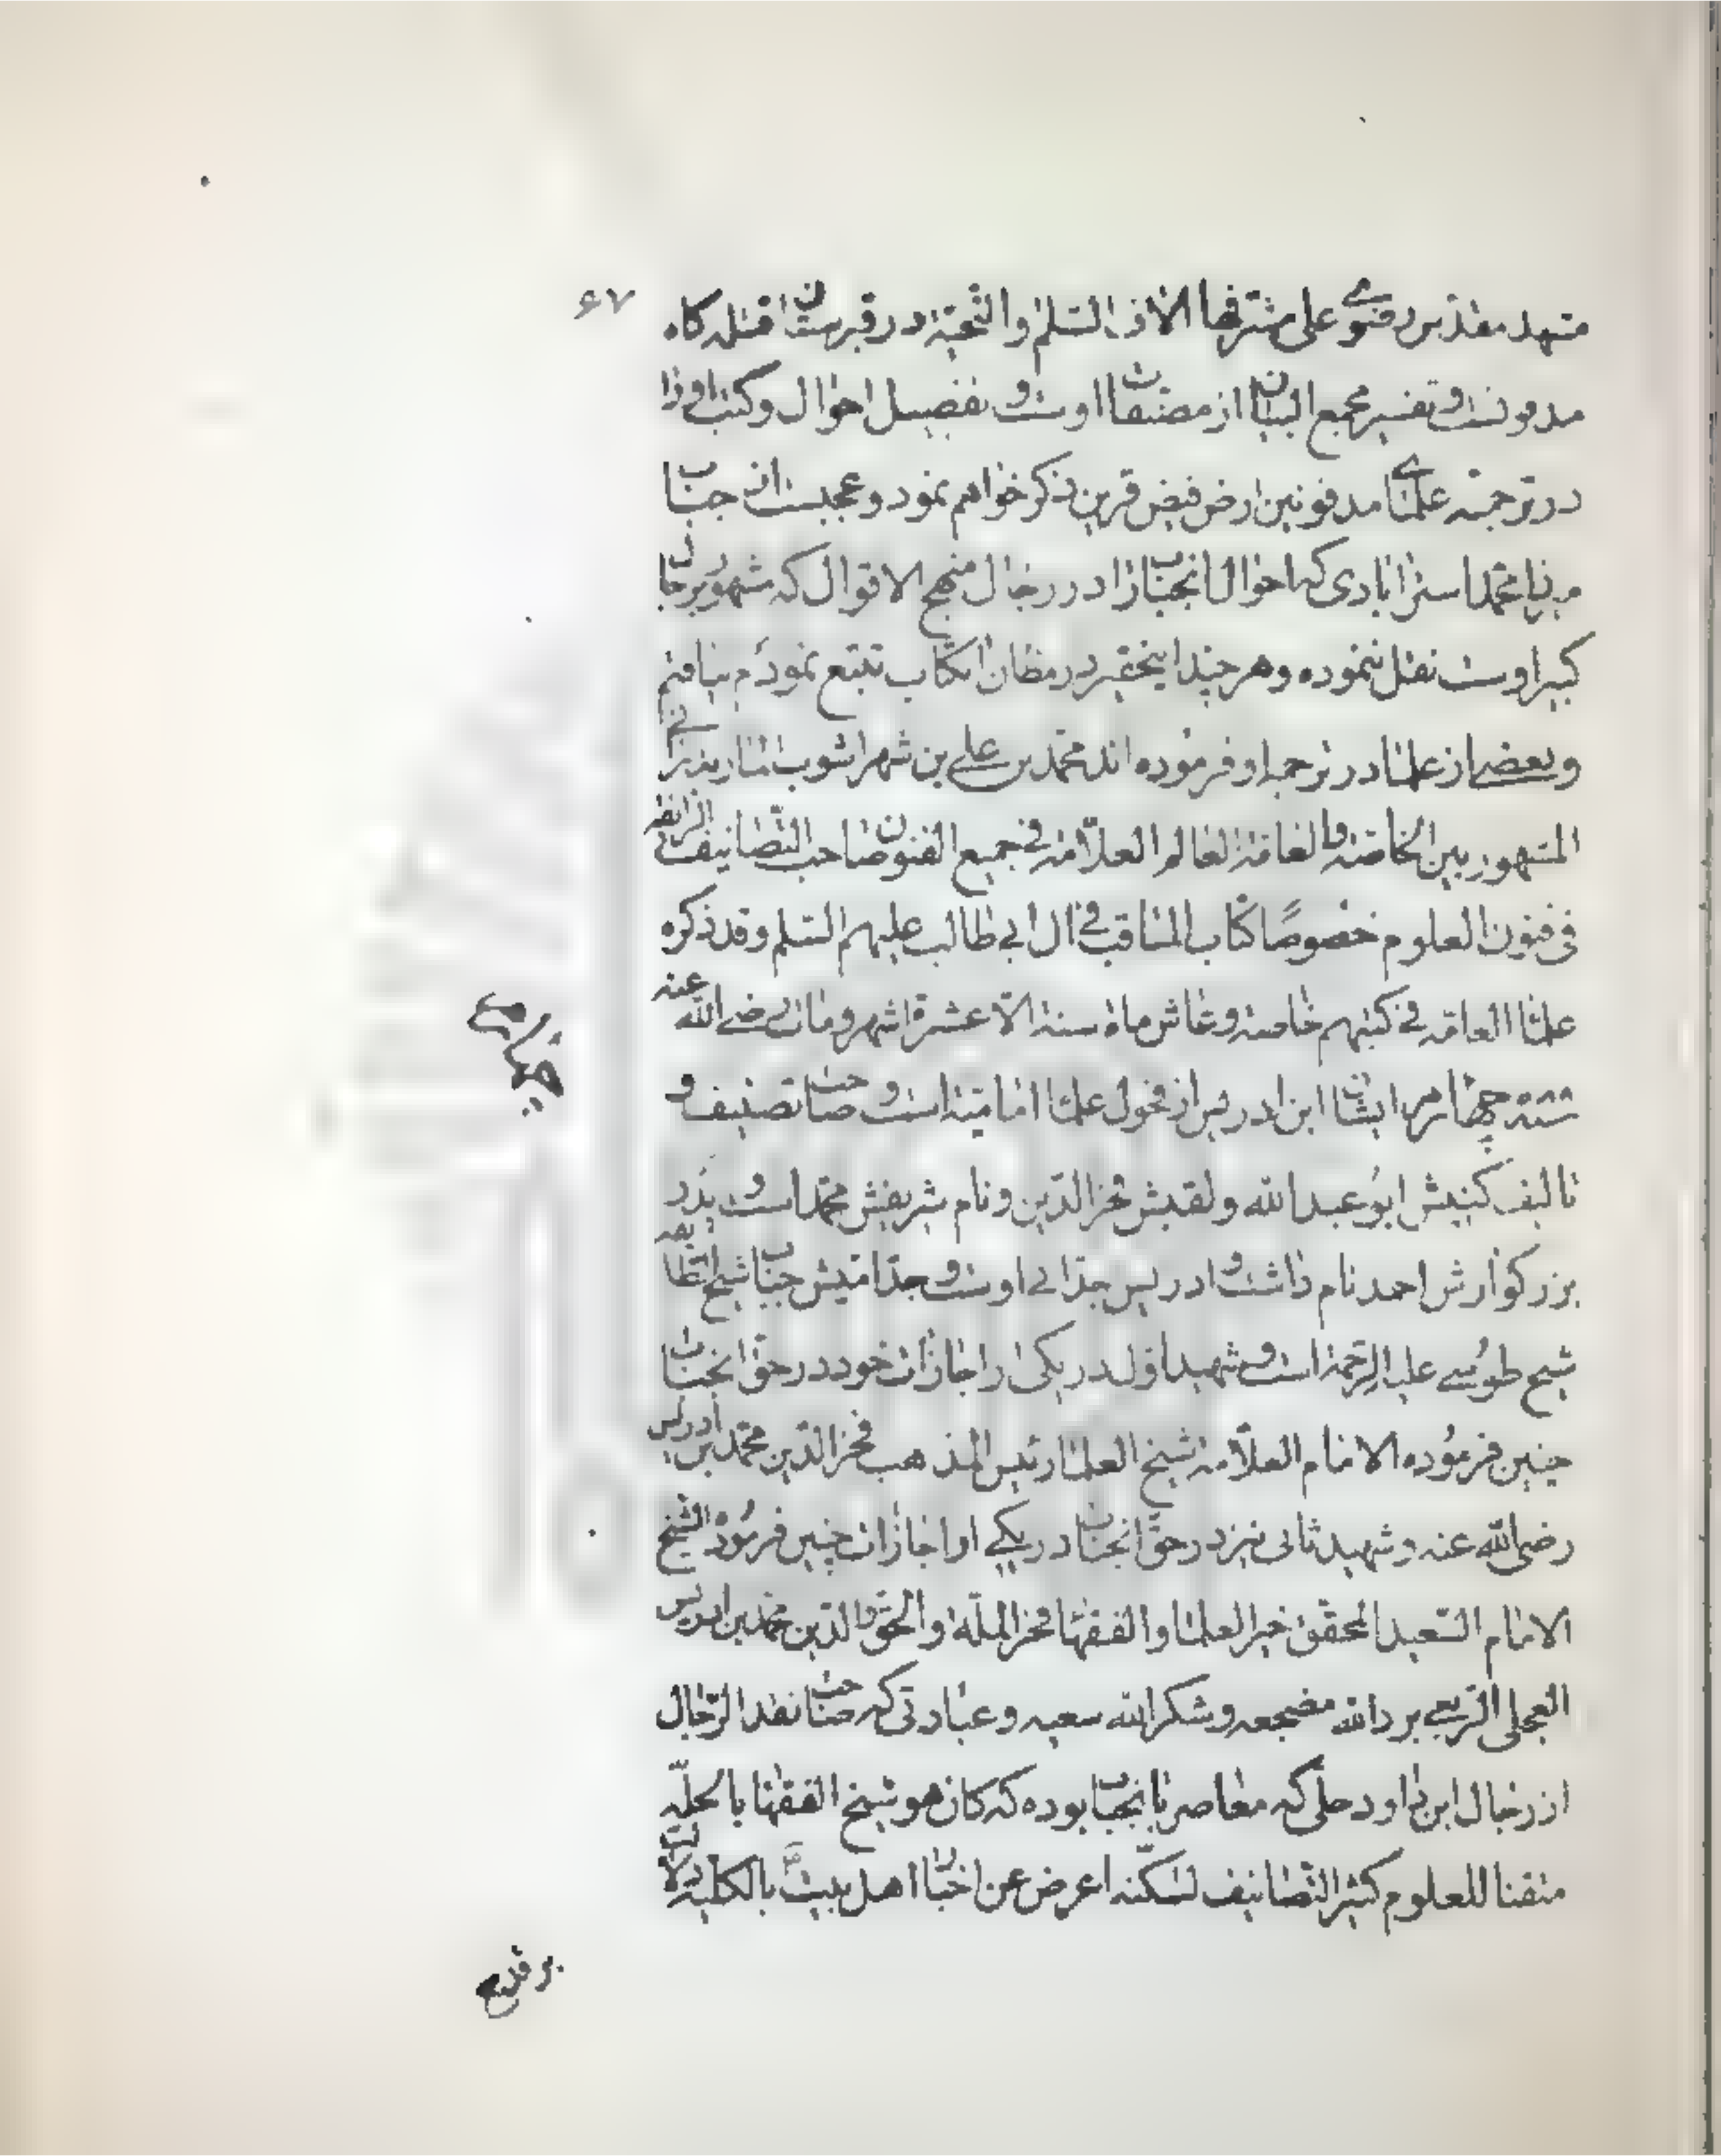 ۶۷
مشهد مقدس رضوی علی مشرفها الاف السلم والتحیة در قبرستان قتله کاه
مدفونست و تفسیر مجمع البیان از مصنفات اوست و تفصیل احوال و کتب او را
در ترجمه علمای مدفونین ارض فیض قرین ذکر خواهم نمود و عجبست از جناب
میرزا محمد استرابادی که احوال انجناب را در رجال منهج الاقوال که مشهور برجال
کبیر اوست نقل ننموده و هر چند اینحقیر در مظان انکتاب تتبع نمودم نیافتم
و بعضی از علما در ترجمه او فرموده اند محمد بن علی بن شهراشوب المازندرانی
المشهور بین الخاصة والعامة العالم العلامة فی جمیع الفنون صاحب التصانیف الرائقه
فی فنون العلوم خصوصًا کتاب المناقب فی ال ابی طالب علیهم السلم وقد ذکره
علماء العامه فی کتبهم خاصة وعاش ماة سنة الا عشرة اشهر ومات رضی الله عنه
سنة چهارم ایشان ابن ادریس از فحول علماء امامیة است و صاحب تصنیف و
چهارم
تالیف کنیتش ابو عبدالله و لقبش فخرالدین و نام شریفش محمد است و پدر
بزرکوارش احمد نام داشت و ادریس جد ابی اوست و جد امیش جناب شیخ الطایفه
شیخ طوسی علیه الرحمة است و شهید اول در یکی از اجازات خود در حق انجناب
چنین فرموده الامام العلامة شیخ العلما رئیس المذهب فخرالدین محمد بن ادریس
رضی الله عنه و شهید ثانی نیز در حق انجناب در یکی از اجازات چنین فرموده الشیخ
الامام السعید المحقق خیر العلما والفقها فخر الملة والحق والدین محمد بن ادریس
العجلی الربعی برد الله مضجعه وشکر الله سعیه و عبارتی که صاحب نقد الرجال
از رجال ابن داود حلی که معاصر با انجناب بوده که کان هو شیخ الفقها بالحله
متقنا للعلوم کثیر التصانیف لکنه اعرض عن اخبار اهل بیت بالکلیة